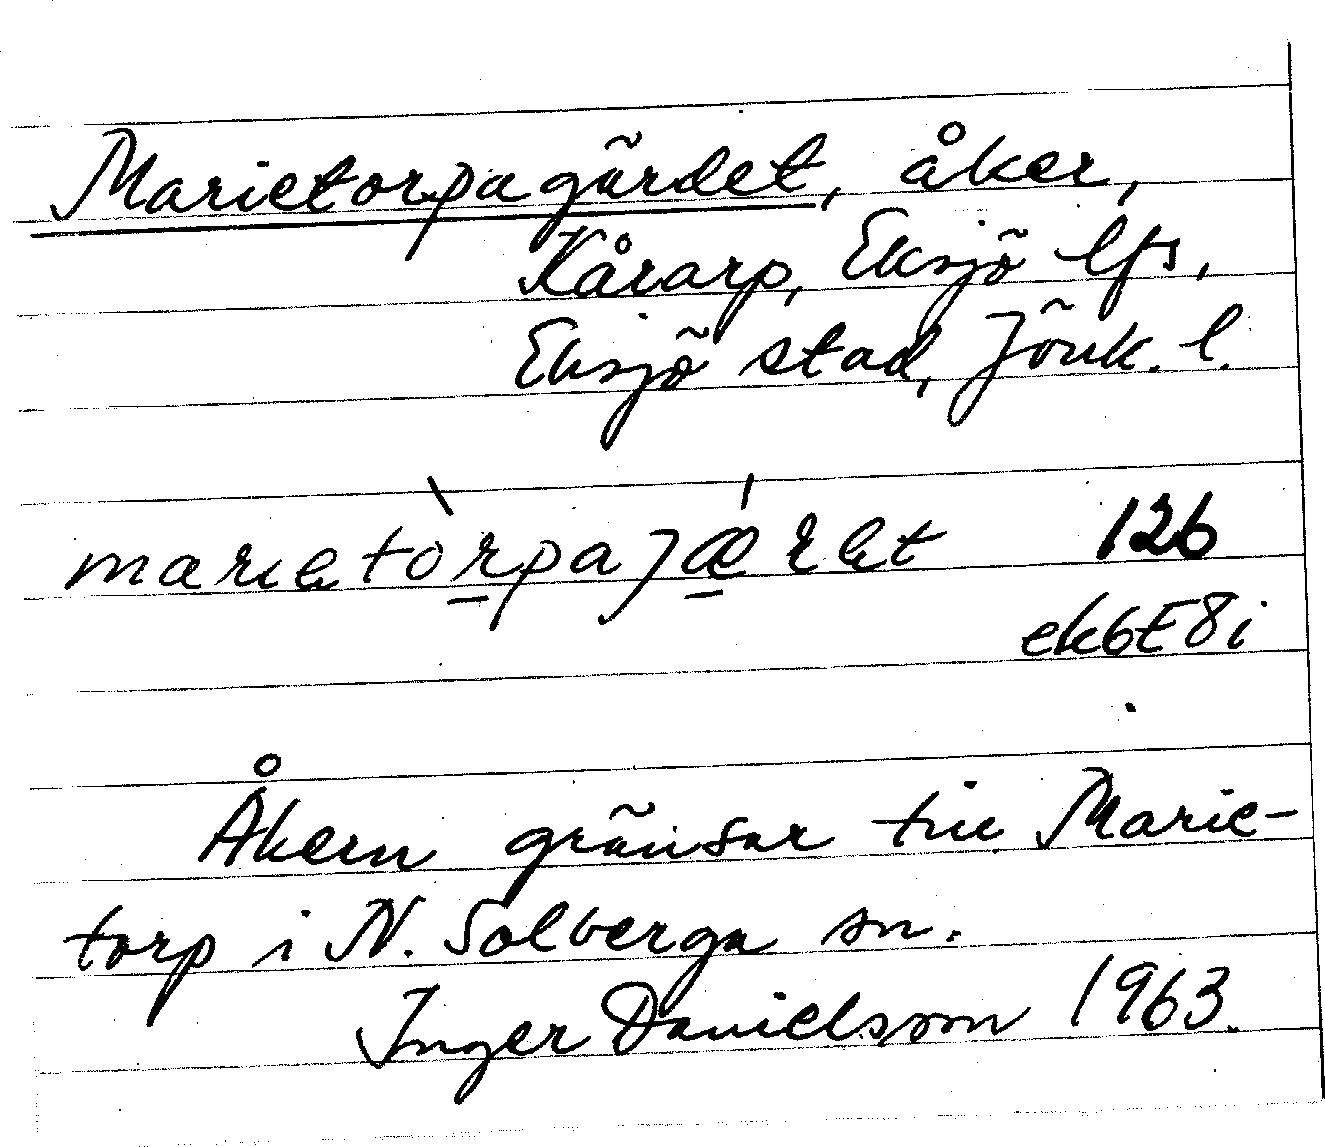 Marietorpagärdet, åker,
Kårarp, Eksjö lfs,
Eksjö stad, Jönk. l.
marietòrpajǽret 126
ek6E8i
Åkern gränsar till Marie-
torp i N. Solberga sn.
Inger Danielsson 1963.